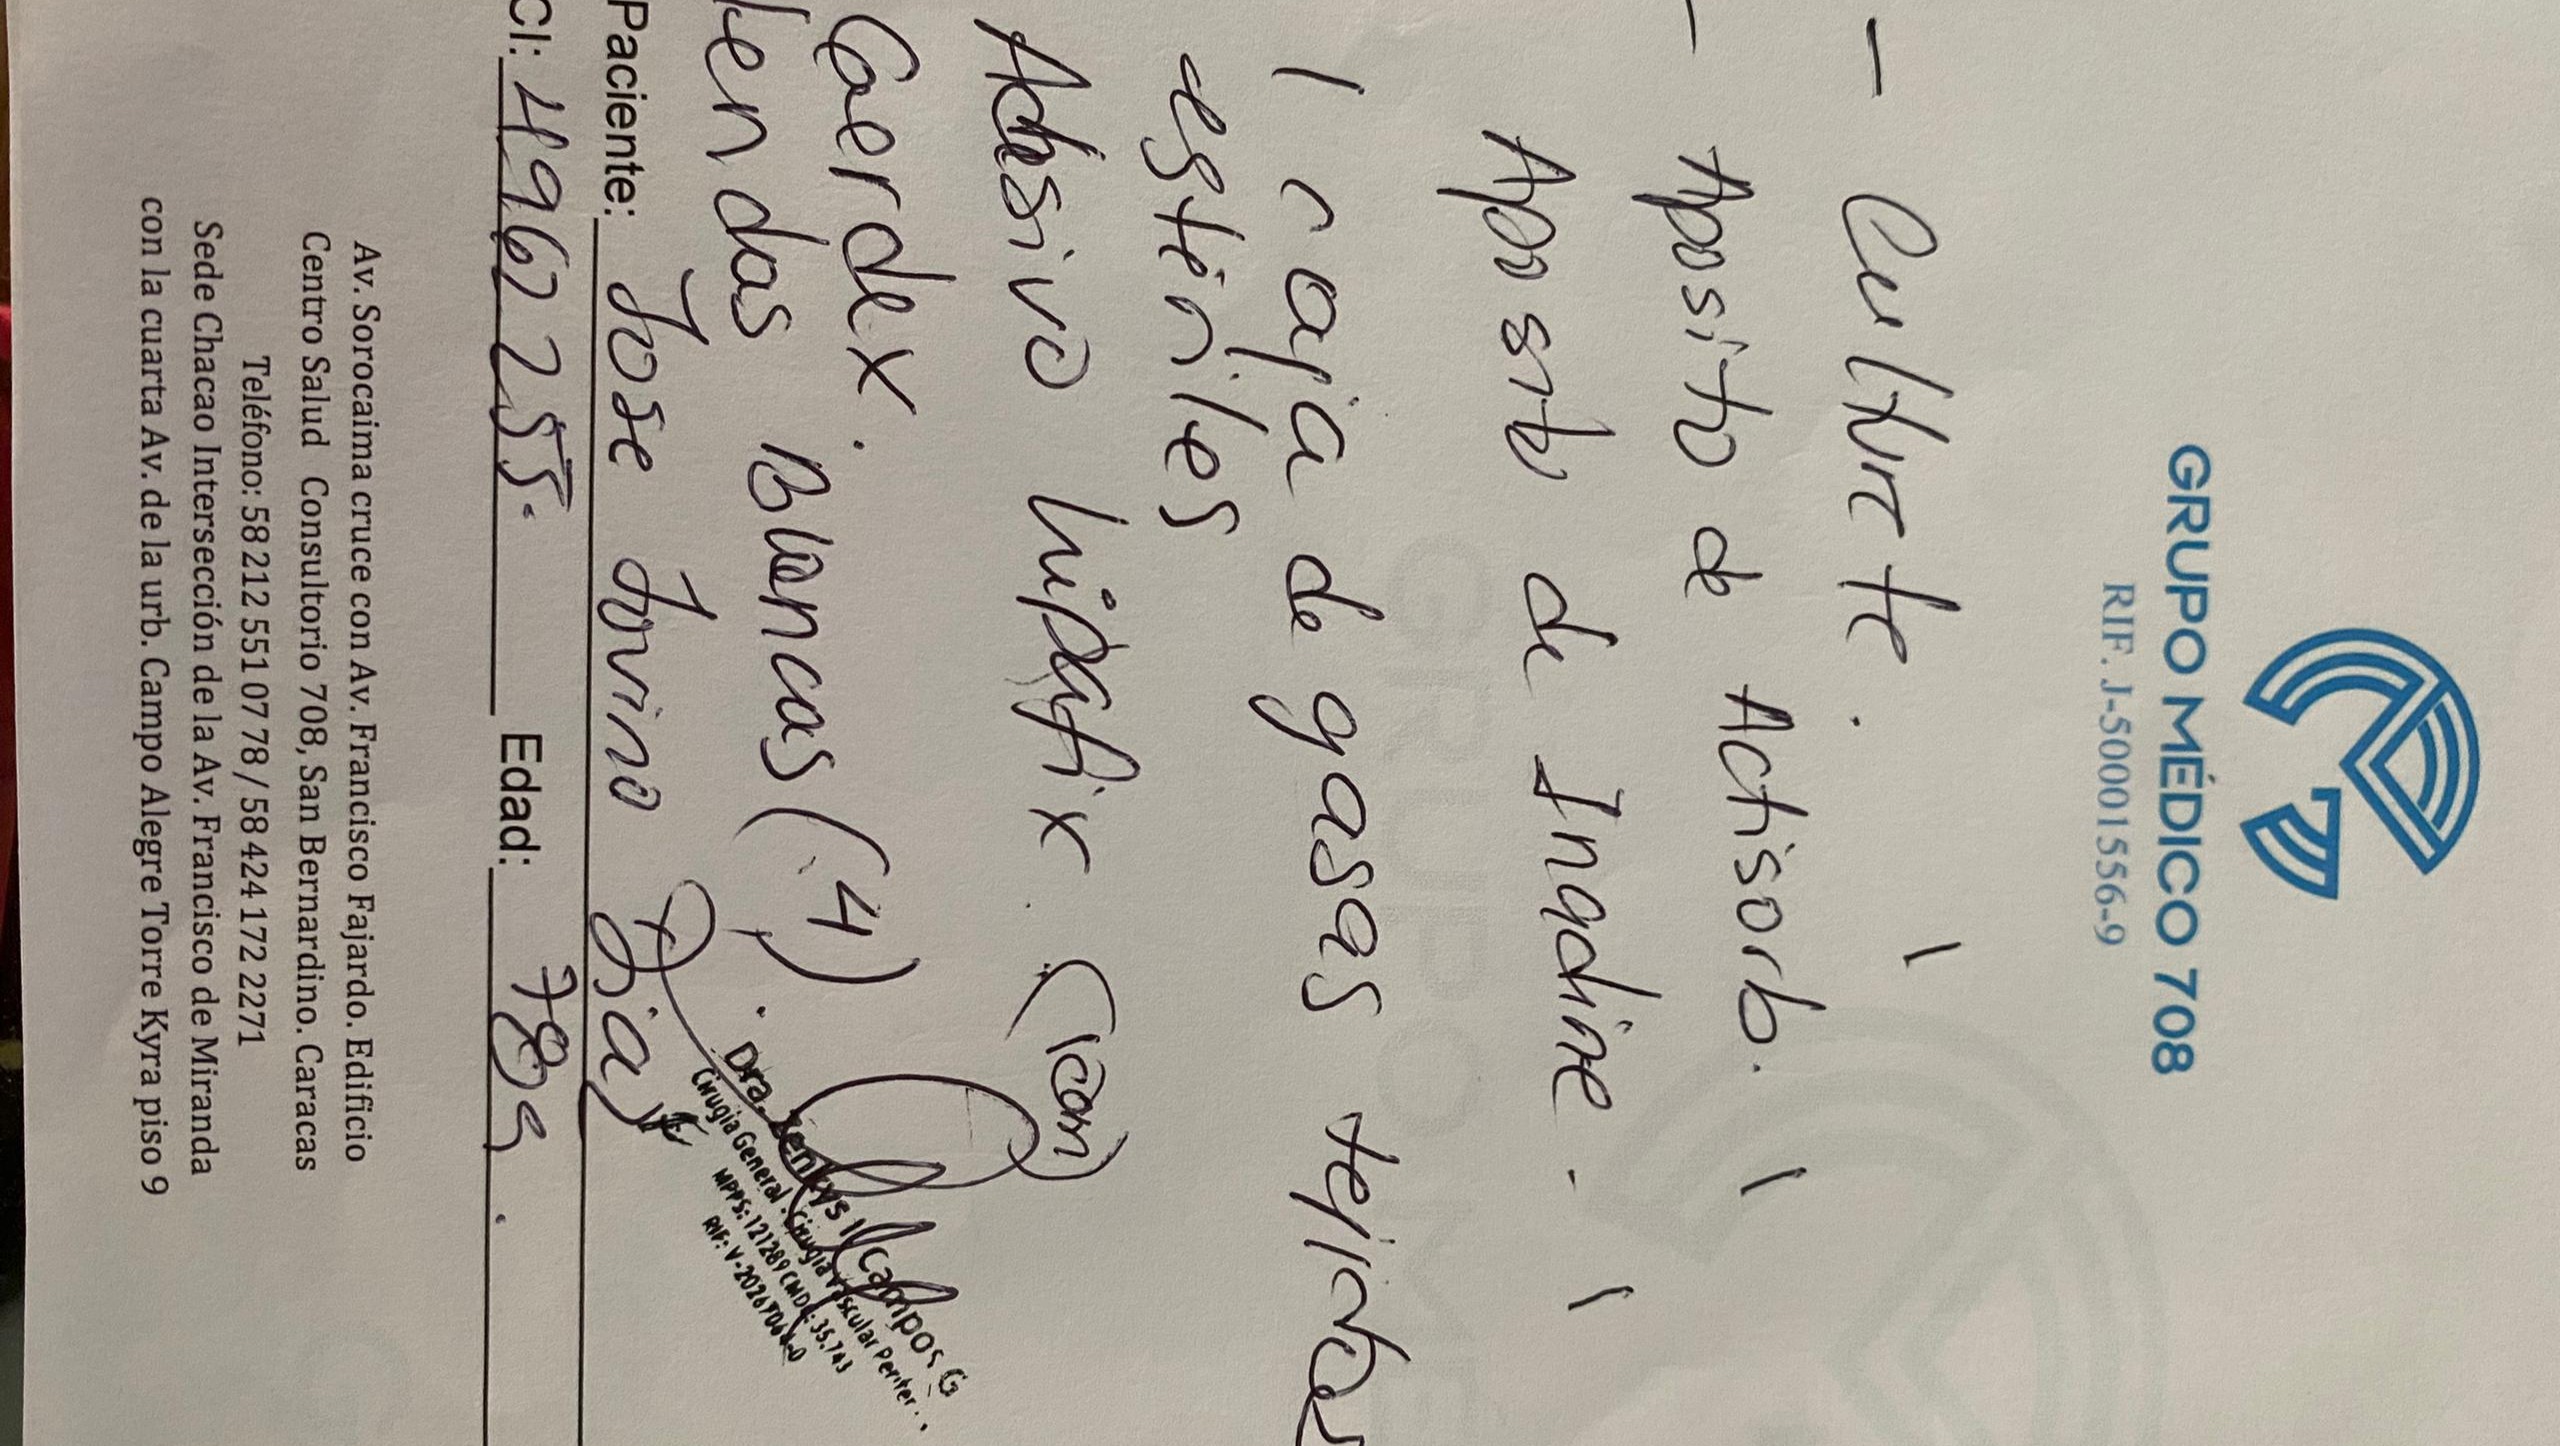 GRUPO MÉDICO 708
RIF. J-50001556-9
- Cutimed. -
- Aposito de Actisorb. -
Aposito de Inadine. -
1 caja de gasas tejidas
estériles
Adesivo hipafix. (10cm)
Coerdex.
Vendas Blancas (4).
Dra. Campos G
Cirugía General. Cirugía Vascular Perifer...
MPPS: 121289 CMDC: 35.743
RIF: V-2026706
Paciente: Jose Jovino Diaz
CI: 4962255. Edad: 78a.
Av. Sorocaima cruce con Av. Francisco Fajardo. Edificio
Centro Salud Consultorio 708, San Bernardino. Caracas
Teléfono: 58 212 551 07 78 / 58 424 172 2271
Sede Chacao Intersección de la Av. Francisco de Miranda
con la cuarta Av. de la urb. Campo Alegre Torre Kyra piso 9